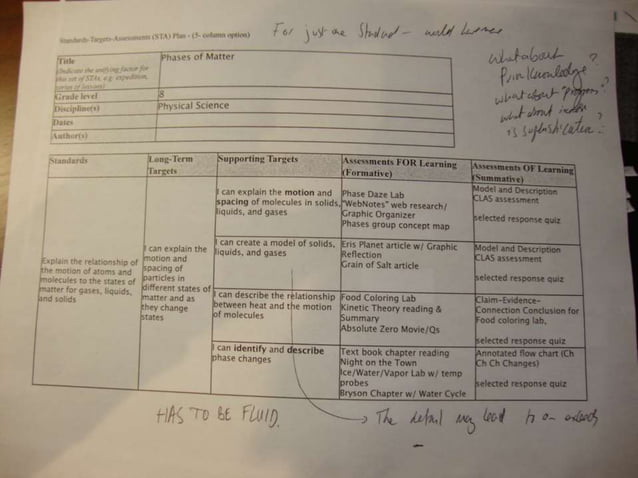 Standards-Targets-Assessments (STA) Plan - (5- column option)
For just one Standard -
Title
(Indicate the unifying factor for
this set of STAs, e.g. expedition,
series of lessons)
Phases of Matter
Grade level
8
Discipline(s)
Physical Science
Dates
Author(s)
what about
Prior Knowledge ?
what about progress?
what about
of sophistication ?
Standards
Long-Term
Targets
Supporting Targets
Assessments FOR Learning
(Formative)
Assessments OF Learning
(Summative)
Explain the relationship of
the motion of atoms and
molecules to the states of
matter for gases, liquids,
and solids
I can explain the
motion and
spacing of
particles in
different states of
matter and as
they change
states
I can explain the motion and
spacing of molecules in solids,
liquids, and gases
Phase Daze Lab
"WebNotes" web research/
Graphic Organizer
Phases group concept map
Model and Description
CLAS assessment
selected response quiz
I can create a model of solids,
liquids, and gases
Eris Planet article w/ Graphic
Reflection
Grain of Salt article
Model and Description
CLAS assessment
selected response quiz
I can describe the relationship
between heat and the motion
of molecules
Food Coloring Lab
Kinetic Theory reading &
Summary
Absolute Zero Movie/Qs
Claim-Evidence-
Connection Conclusion for
Food coloring lab,
selected response quiz
I can identify and describe
phase changes
Text book chapter reading
Night on the Town
Ice/Water/Vapor Lab w/ temp
probes
Bryson Chapter w/ Water Cycle
Annotated flow chart (Ch
Ch Ch Changes)
selected response quiz
HAS TO BE FLUID.
The detail may lead to an